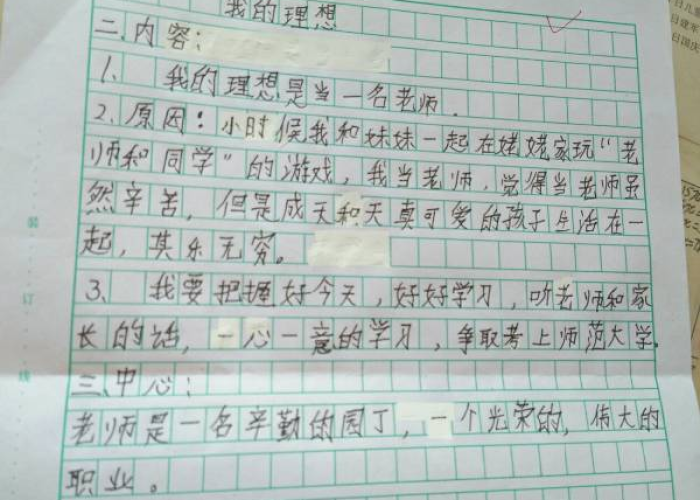 我的理想
二、内容：
1、 我的理想是当一名老师.
2、原因：小时候我和妹妹一起在姥姥家玩“老
师和同学”的游戏，我当老师，觉得当老师虽
然辛苦，但是成天和天真可爱的孩子生活在一
起，其乐无穷。
3、 我要把握好今天，好好学习，听老师和家
长的话，一心一意的学习，争取考上师范大学.
三、中心：
老师是一名辛勤的园丁，一个光荣的，伟大的
职业。
装
订
线